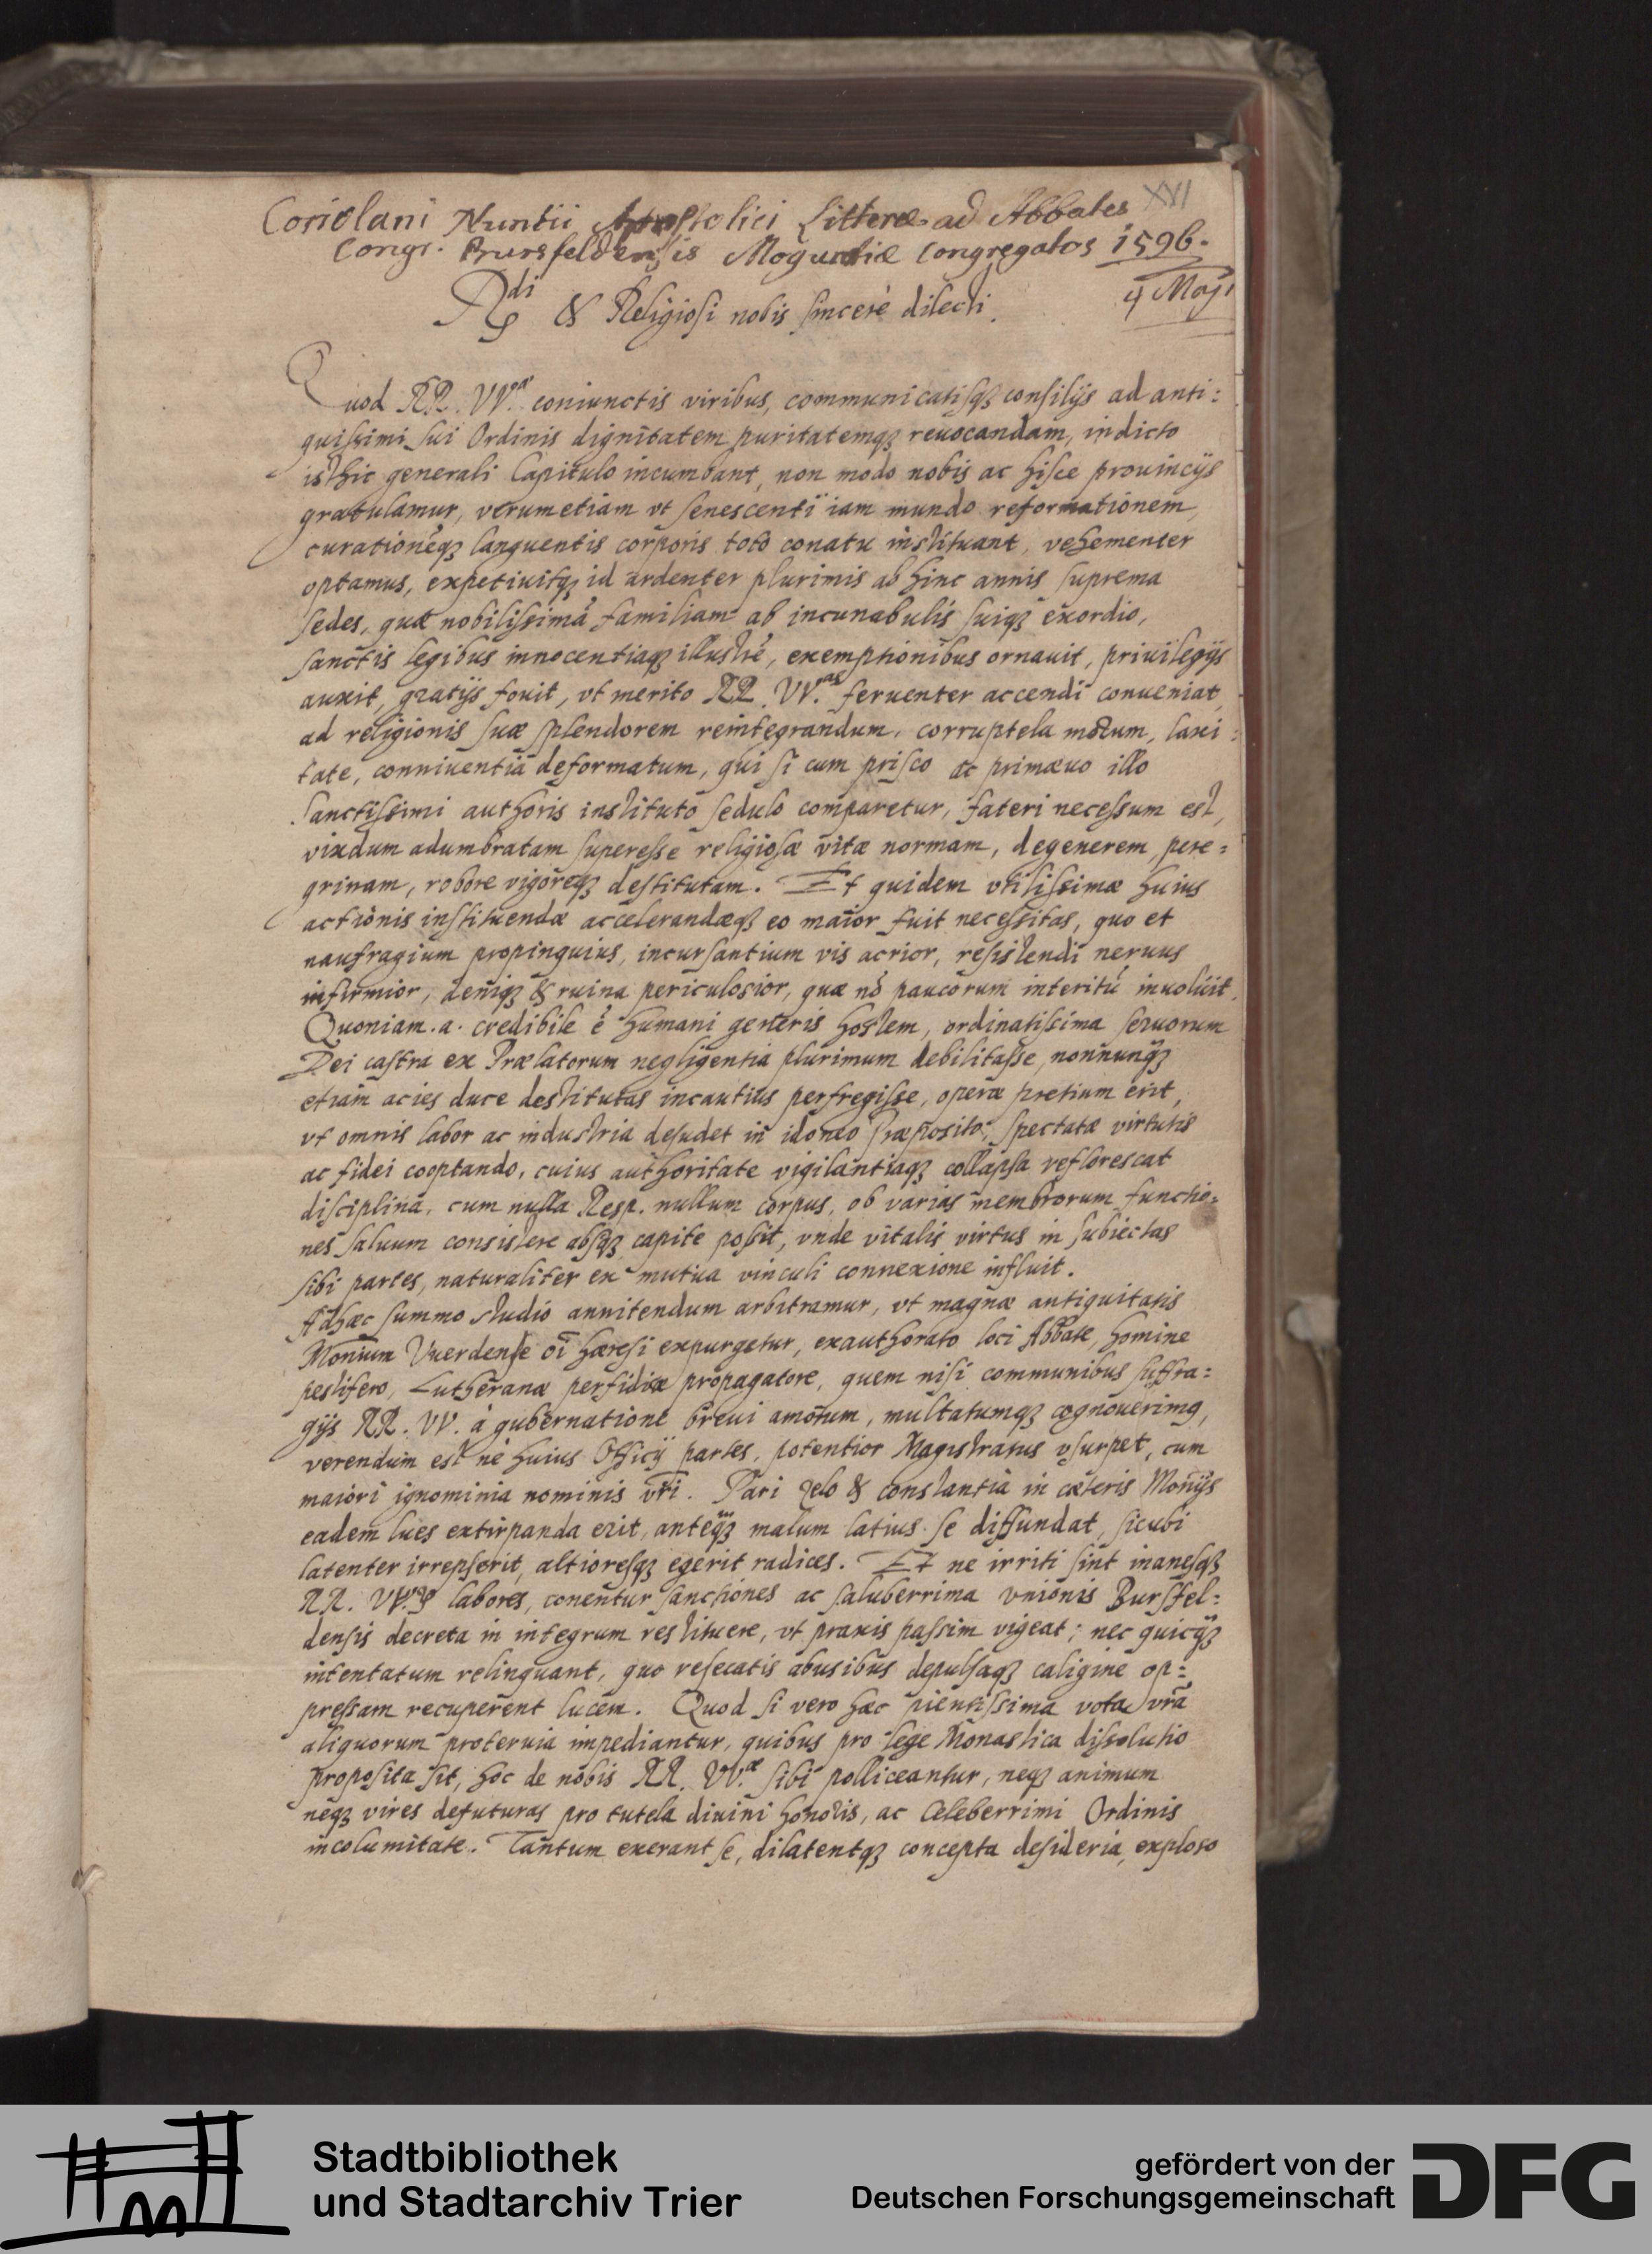 XVI
Coriolani Nuntii Apostolici Litteræ ad Abbates
Congr. Bursfeldensis Moguntiæ Congregatos 1596.
4 Maij
Rdi & Religiosi nobis sincerè dilecti.
Quod RR. VV. coniunctis viribus, communicatisqꝫ consilijs ad anti:
quissimi sui Ordinis dignitatem puritatemqꝫ reuocandam, indicto
isthic generali Capitulo incumbant, non modo nobis ac hisce prouincijs
gratulamur, verumetiam vt senescenti iam mundo reformationem,
curationéqꝫ languentis corporis toto conatu instituant, vehementer
optamus, expetiuitqꝫ id ardenter plurimis ab hinc annis suprema
sedes, quæ nobilissimā familiam ab incunabulis suiqꝫ exordio,
sanctis legibus innocentiaqꝫ illustrē, exemptionibus ornauit, priuilegijs
auxit, gratijs fouit, vt merito RR. VV.as feruenter accendi conueniat
ad religionis suæ splendorem reintegrandum, corruptela morum, laxi:
tate, conniuentiā deformatum, qui si cum prisco ac primæuo illo
sanctissimi authoris instituto sedulo comparetur, fateri necessum est,
vixdum adumbratam superesse religiosæ vitæ normam, degenerem, pere:
grinam, robore vigoreqꝫ destitutam. Et quidem vtilissimæ huius
actionis instituendæ accelerandæqꝫ eo maior fuit necessitas, quo et
naufragium propinquius, incursantium vis acrior, resistendi neruus
infirmior, deniqꝫ & ruina periculosior, quæ nō paucorum interitū inuoluit.
Quoniam .a. credibile ē humani generis hostem, ordinatissima seruorum
Dei castra ex Prælatorum negligentia plurimum debilitasse, nonnunqꝫ
etiam acies duce destitutas incautius perfregisse, operæ pretium erit,
vt omnis labor ac industria desudet in idoneo Præposito, spectatæ virtutis
ac fidei cooptando, cuius authoritate vigilantiaqꝫ collapsa reflorescat
disciplina, cum nulla Resp. nullum corpus, ob varias membrorum functio:
nes saluum consistere absqꝫ capite possit, vnde vitalis virtus in subiectas
sibi partes, naturaliter ex mutua vinculi connexione influit.
Adhæc summo studio annitendum arbitramur, vt magnæ antiquitatis
Monium Vuerdense oī hæresi expurgetur, exauthorato loci Abbate, homine
pestifero, Lutheranæ perfidiæ propagatore, quem nisi communibus suffra:
gijs RR. VV. à gubernatione breui amotum, multatumqꝫ cognouerimꝰ,
verendum est nè huius Officij partes, potentior Magistratus vsurpet, cum
maiori ignominia nominis vr̄i. Pari zelo & constantia in cæteris Monijs
eadem lues extirpanda erit, anteqꝫ malum latius se diffundat, sicubi
latenter irrepserit, altioresqꝫ egerit radices. Et ne irriti sint inanesqꝫ
RR. VV. labores, conentur sanctiones ac saluberrima vnionis Bursfel:
densis decreta in integrum restituere, vt praxis passim vigeat; nec quicqꝫ
intentatum relinquant, quo resecatis abusibus depulsaqꝫ caligine op:
pressam recuperent lucem. Quod si vero hæc pientissima vota vr̄a
aliquorum proteruia impediantur, quibus pro lege Monastica dissolutio
proposita sit, hoc de nobis RR. VV.æ sibi polliceantur, neqꝫ animum
neqꝫ vires defuturas pro tutela diuini honoris, ac Celeberrimi Ordinis
incolumitate. Tantum exerant se, dilatentqꝫ concepta desideria, exploso
Stadtbibliothek
und Stadtarchiv Trier
gefördert von der
Deutschen Forschungsgemeinschaft
DFG